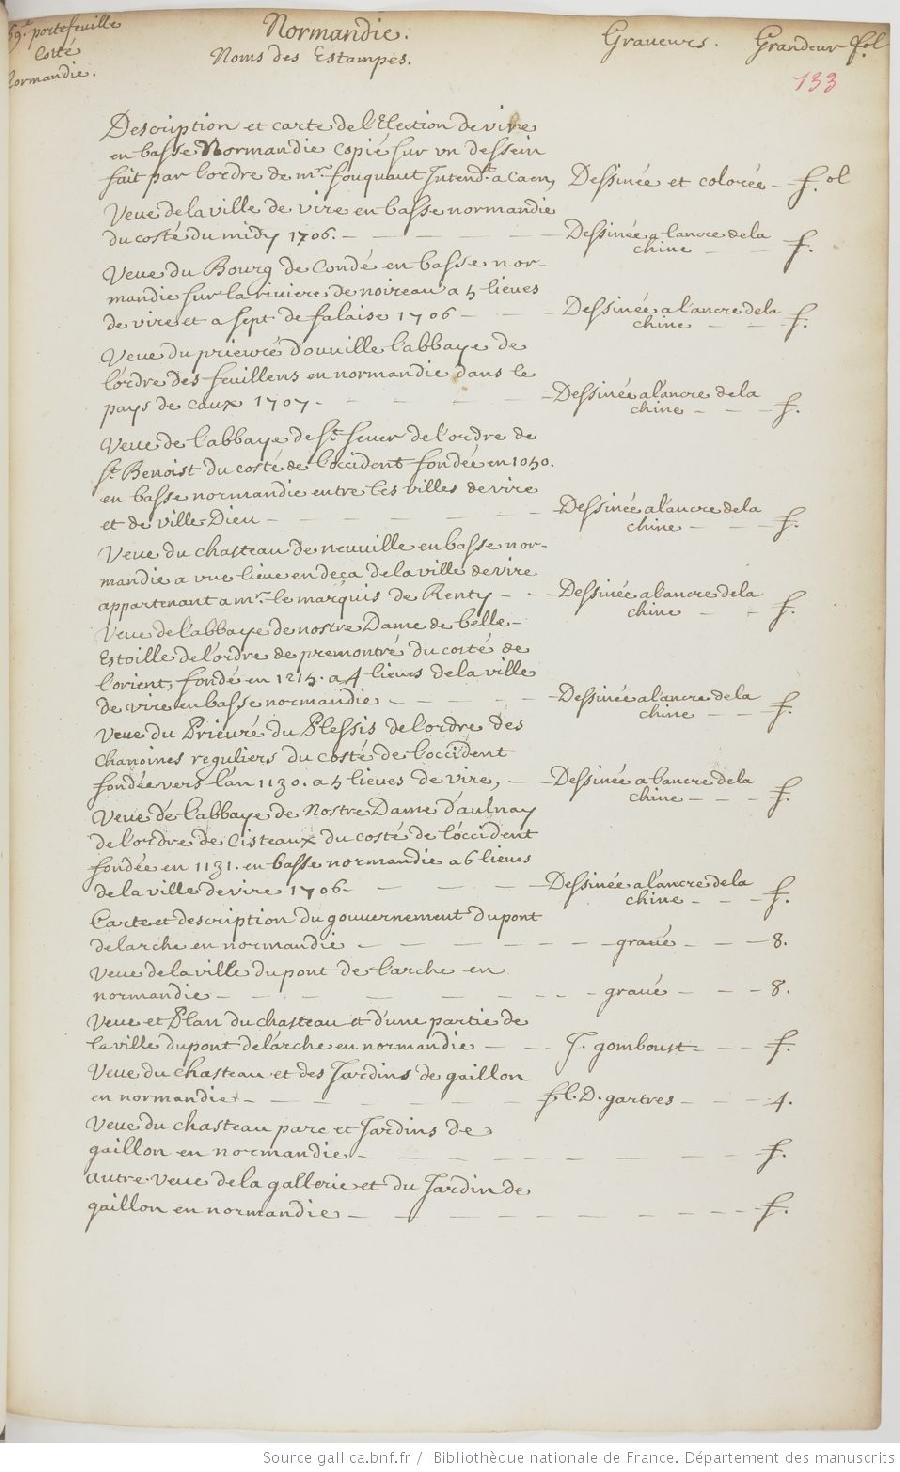 59.e portefeuille
Cotté
Normandie.
Normandie.
Noms des Estampes.
Graveurs.
Grandeur fol
133
Description et carte de l'Election de vire
en basse Normandie copié sur un dessein
fait par l'ordre de mr. fouquaut Intendt. a Caen, Dessinée et colorée - f.ol
Veue de la ville de vire en basse normandie
du costé du midy 1706. - Dessinée a lancre de la
chine - - f.
Veue du Bourg de Condé en basse nor-
mandie sur la riviere de noireau a 5 lieues
de vire et a sept de falaise 1706 - Dessinée a l'ancre de la
chine - - f.
Veue du prieuré d'ouville l'abbaye de
l'ordre des feuillens en normandie dans le
pays de caux 1707. - Dessinée a l'ancre de la
chine - - f.
Veue de l'abbaye de St. Sever de l'ordre de
St. Benoist du costé de l'occident fondée en 1050.
en basse normandie entre les villes de vire
et de ville Dieu - Dessinée a l'ancre de la
chine - - f.
Veue du chasteau de neuville en basse nor-
mandie a une lieue en deça de la ville de vire
appartenant a mr. le marquis de Renty - Dessinée a l'ancre de la
chine - - f.
Veue de l'abbaye de nostre Dame de belle-
Estoille de l'ordre de premontré du costé de
l'orient, fondé en 1215. a 4 lieues de la ville
de vire en basse normandie - Dessinée a l'ancre de la
chine - - f.
Veue du Prieuré du Plessis de l'ordre des
chanoines reguliers du costé de l'occident
fondée vers l'an 1130. a 5 lieues de vire, - Dessinée a l'ancre de la
chine - - - f.
Veue de l'abbaye de Nostre Dame d'aulnay
de l'ordre de Cisteaux du costé de l'occident
fondée en 1131. en basse normandie a 6 lieues
de la ville de vire 1706. - Dessinée a l'ancre de la
chine - - - f.
Carte et description du gouvernement du pont
de larche en normandie - gravé - - - 8.
Veue de la ville du pont de l'arche en
normandie - gravé - - - 8.
Veue et Plan du chasteau et d'une partie de
la ville du pont de l'arche en normandie - J. gomboust - - f.
Veue du chasteau et des Jardins de gaillon
en normandie - D. gartres - - - 4.
Veue du chasteau parc et Jardins de
gaillon en normandie - f.
autre veue de la gallerie et du Jardin de
gaillon en normandie - f.
Source gallica.bnf.fr / Bibliothèque nationale de France. Département des manuscrits